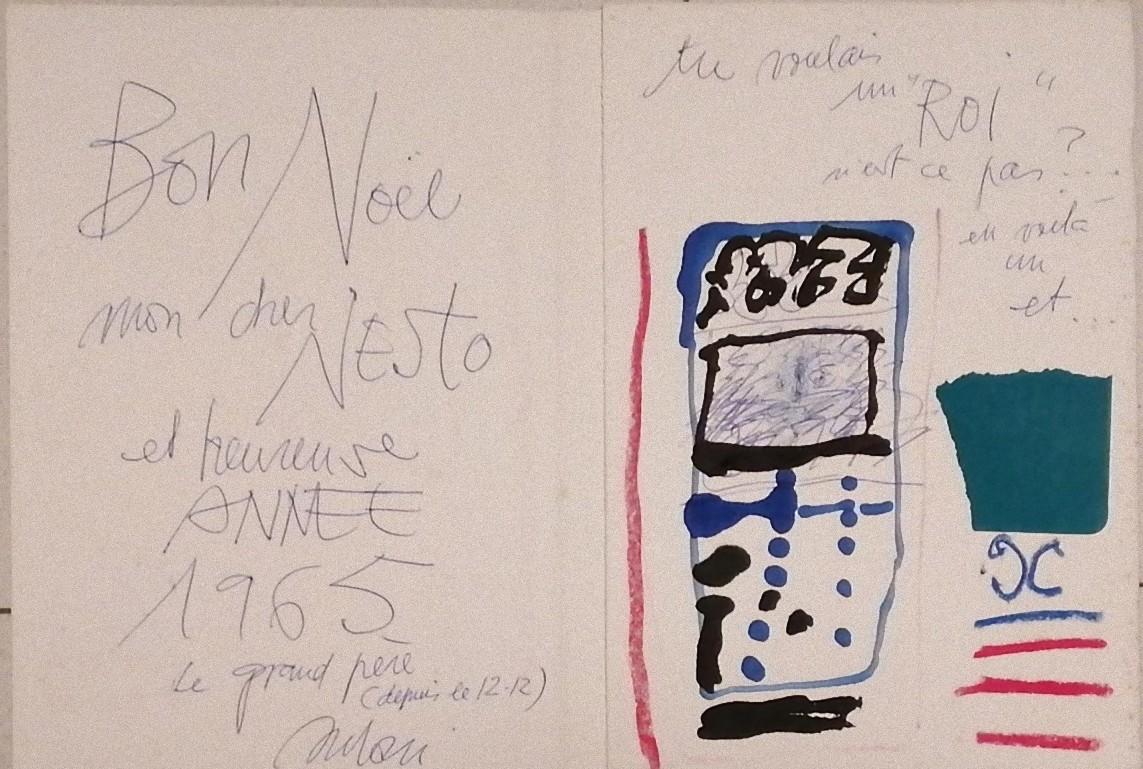 Bon Noël
mon cher NESTO
et heureuse
ANNEE
1965
Le grand père
(depuis le 12-12)
tu voulais
un "ROI"
n'est ce pas ?...
en voilà
un
et...